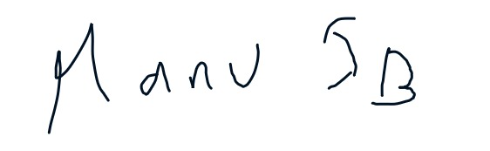 Manu SB